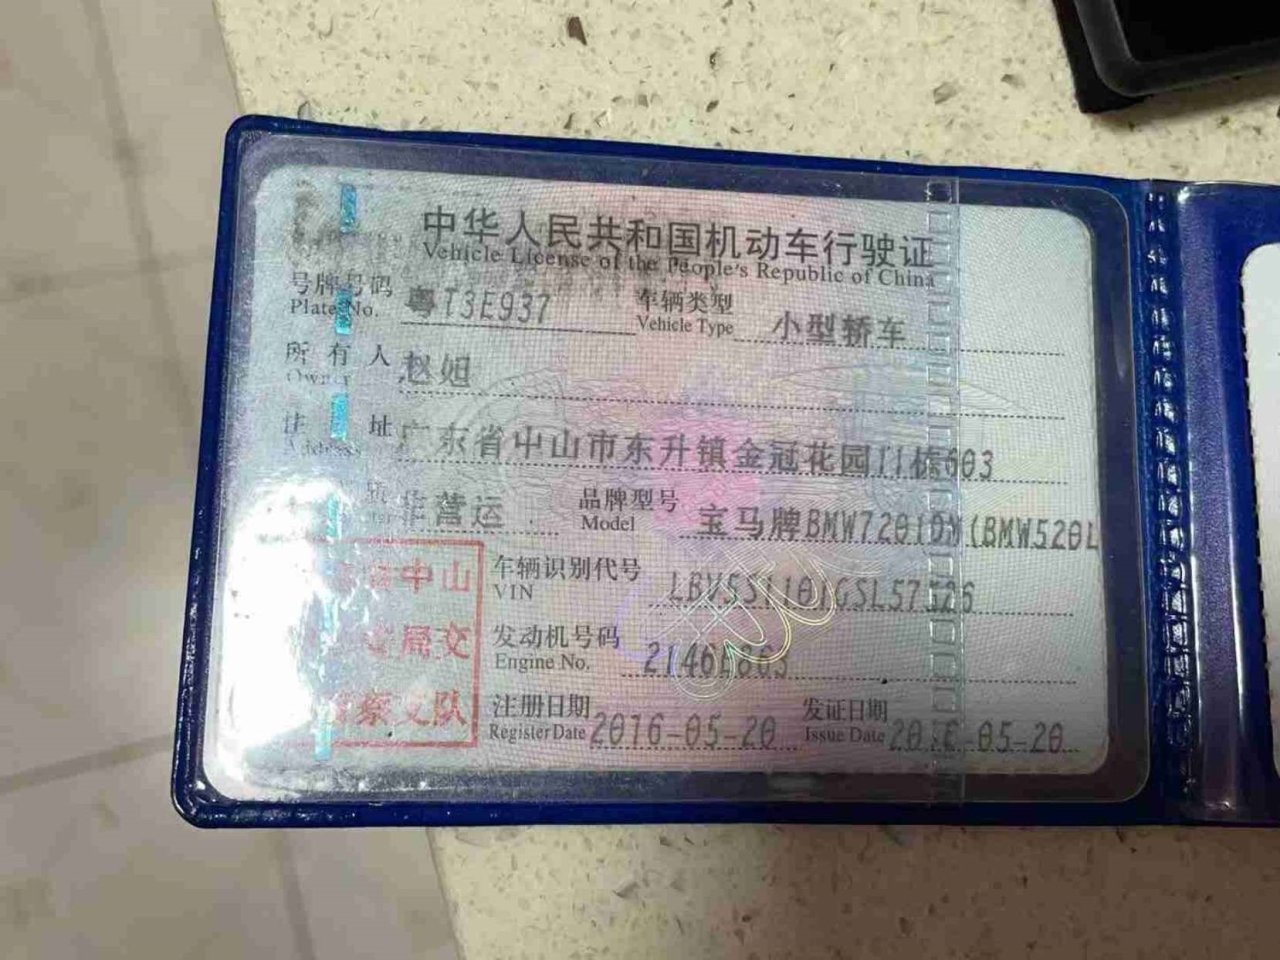 中华人民共和国机动车行驶证
Vehicle License of the People's Republic of China
号牌号码 粤T3E937 车辆类型 小型轿车
Plate No. Vehicle Type
所有人 赵妲
Owner
住址 广东省中山市东升镇金冠花园11栋603
Address
质 非营运 品牌型号 宝马牌BMW7201DM(BMW520L
Model
中山 车辆识别代号
VIN
局交 发动机号码
Engine No.
察支队 注册日期 2016-05-20 发证日期 -05-20
Register Date Issue Date